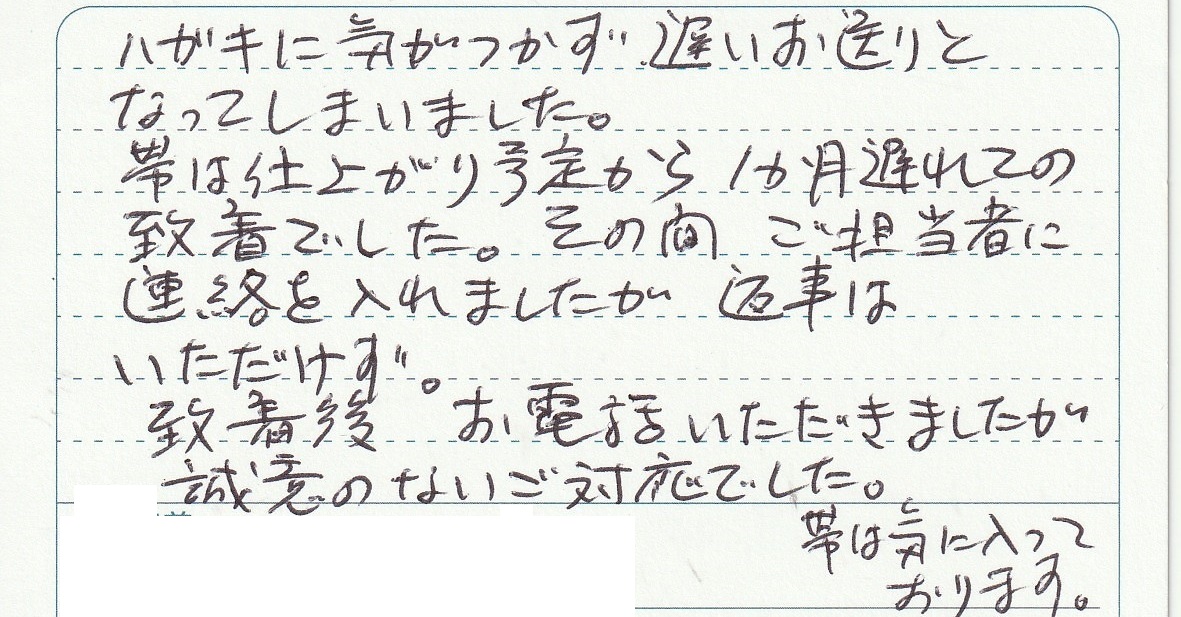 ハガキに気がつかず 遅いお送りと
なってしまいました。
帯は仕上がり予定から 1か月遅れての
致着でした。その間 ご担当者に
連絡を入れましたが 返事は
いただけず。
致着後 お電話いただきましたが
誠意のないご対応でした。
帯は気に入って
おります。